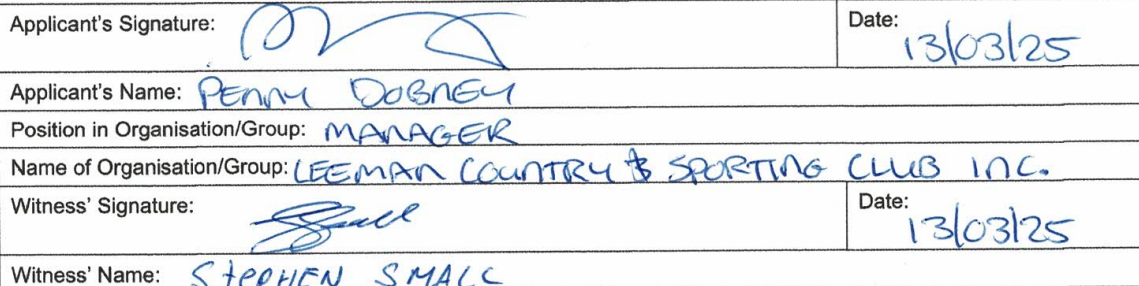 Applicant's Signature: Date: 13/03/25
Applicant's Name: PENNY DOBNEY
Position in Organisation/Group: MANAGER
Name of Organisation/Group: LEEMAN COUNTRY & SPORTING CLUB INC.
Witness' Signature: Date: 13/03/25
Witness' Name: STEPHEN SMALL